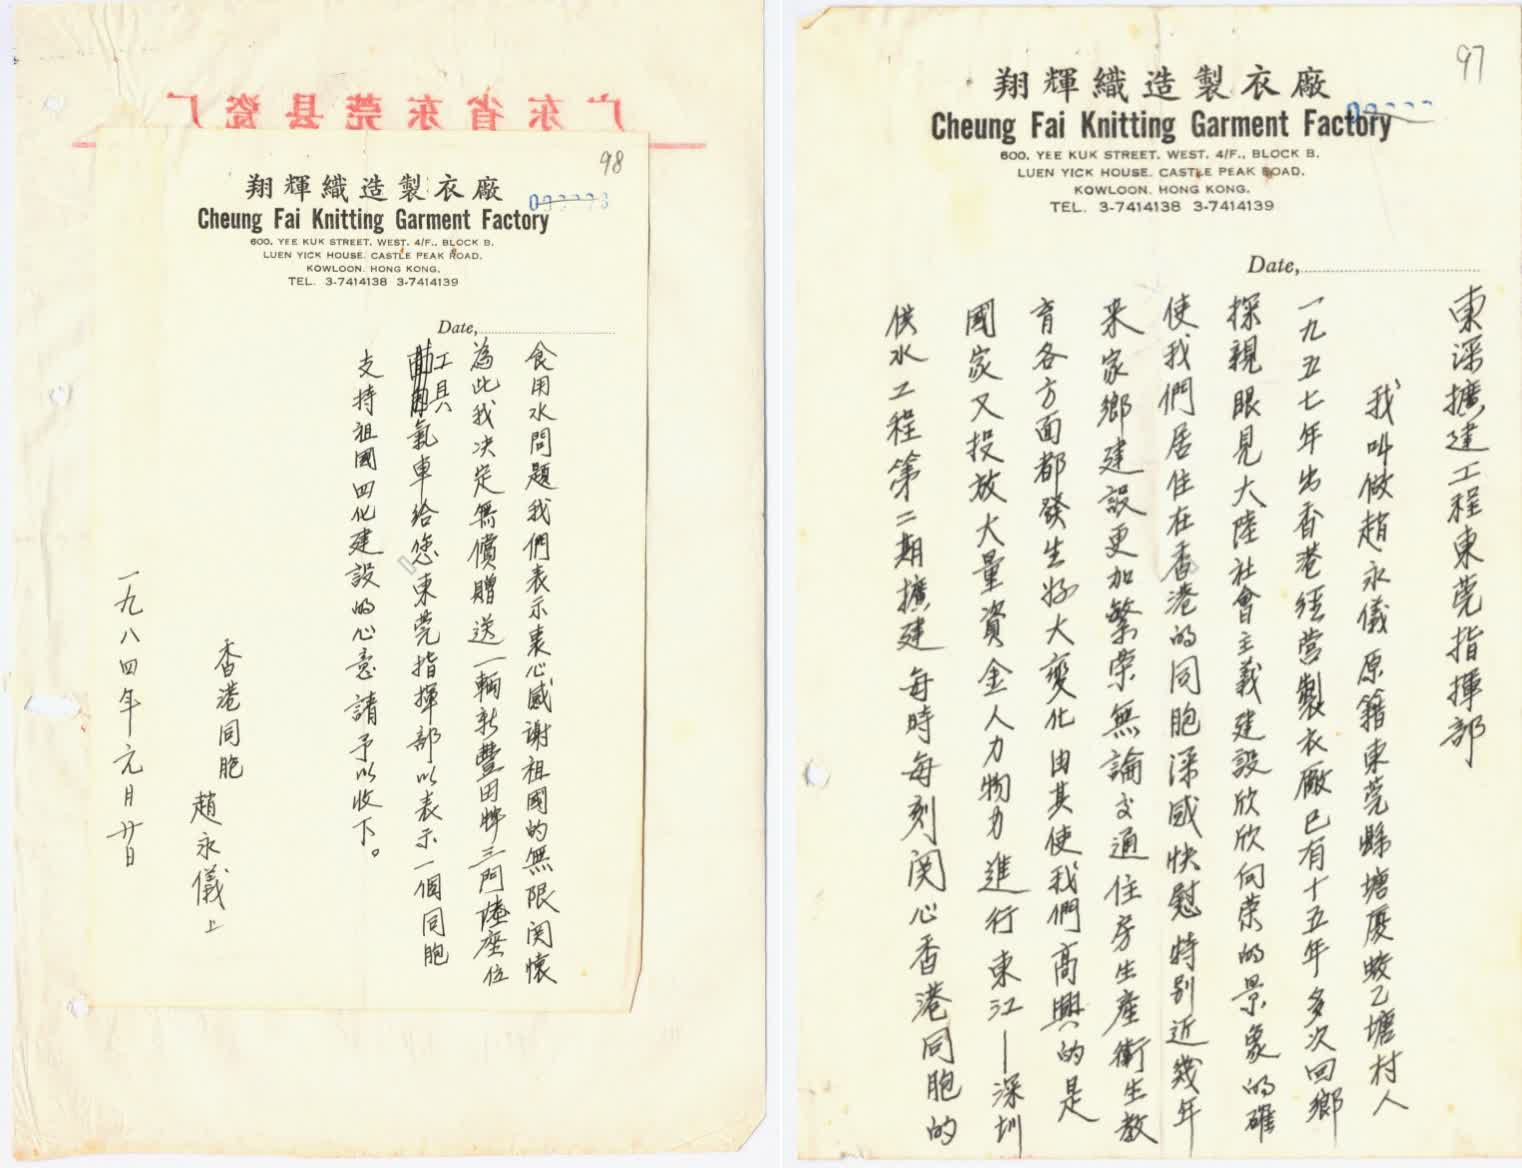 97
翔輝織造製衣廠
Cheung Fai Knitting Garment Factory
600, YEE KUK STREET, WEST, 4/F., BLOCK B,
LUEN YICK HOUSE, CASTLE PEAK ROAD,
KOWLOON, HONG KONG.
TEL. 3-7414138 3-7414139
Date,
東深擴建工程東莞指揮部
我叫做趙永儀原籍東莞縣塘厦蛟乙塘村人
一九五七年出香港經营製衣廠已有十五年多次回鄉
探親眼見大陸社會主義建設欣欣向荣的景象的確
使我們居住在香港的同胞深感快慰特别近幾年
来家鄉建設更加繁荣無論交通住房生產衛生教
育各方面都發生好大變化由其使我們高興的是
國家又投放大量資金人力物力進行東江——深圳
供水工程第二期擴建每時每刻関心香港同胞的
广东省东莞县瓷厂
98
翔輝織造製衣廠
Cheung Fai Knitting Garment Factory
600, YEE KUK STREET, WEST, 4/F., BLOCK B,
LUEN YICK HOUSE, CASTLE PEAK ROAD,
KOWLOON, HONG KONG.
TEL. 3-7414138 3-7414139
Date,
食用水問題我們表示衷心感謝祖國的無限関懷
為此我决定無償贈送一輛新豐田牌三門陸座位
工具氣車给您東莞指揮部以表示一個同胞
支持祖國四化建設的心意請予以收下。
香港同胞
趙永儀上
一九八四年元月廿日